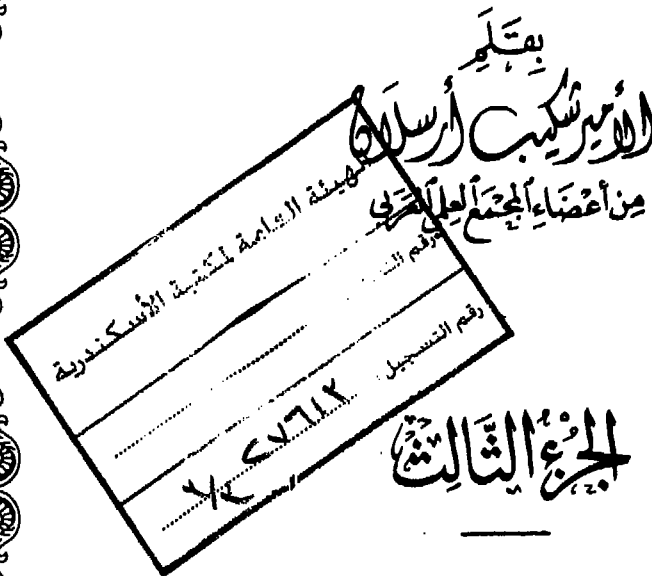 بِقَلَمِ
الأمير شكيب أرسلان
مِن أعْضَاءِ المَجْمَعِ العِلْمِي العَرَبِي
الهيئة العامة لمكتبة الأسكندرية
رقم
رقم التسجيل
٢٧٦١٢
الجُزْءُ الثَّالِث